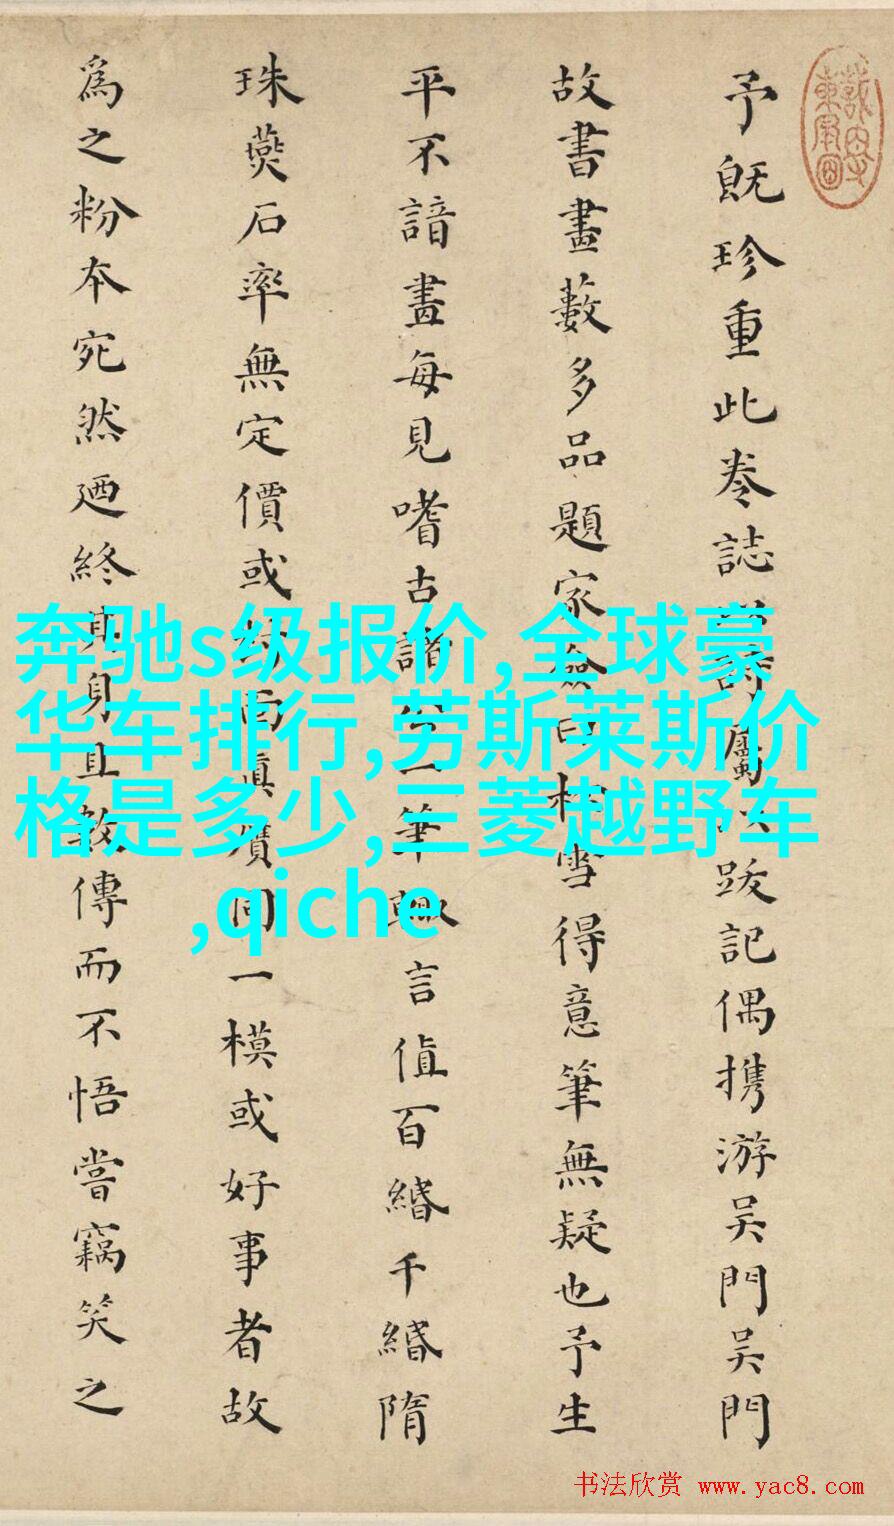 予既珍重此卷誌詩屬以跋記偶携游吴門吴門
故書畫藪多品題家僉曰松雪得意筆無疑也予生
平不諳畫每見嗜古諸一筆輙言值百緡千緡隋
珠燕石率無定價或而真贋同一模或好事者故
為之粉本宛然廼終其身且傳而不悟嘗竊笑之
奔驰s级报价,全球豪
华车排行,劳斯莱斯价
格是多少,三菱越野车
,qiche
书法欣赏 www.yac8.com